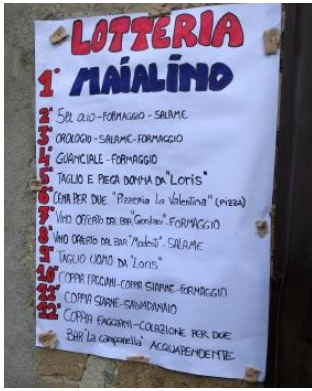 LOTTERIA
1° MAIALINO
2° 5Lt OLIO - FORMAGGIO - SALAME
3° OROLOGIO - SALAME - FORMAGGIO
4° GUANCIALE - FORMAGGIO
5° TAGLIO E PIEGA DONNA DA "Loris"
6° CENA PER DUE "Pizzeria La Valentina" (PIZZA)
7° VINO OFFERTO DAL BAR "Giordani" - FORMAGGIO
8° VINO OFFERTO DAL BAR "Modesti" - SALAME
9° TAGLIO UOMO DA "Loris"
10° COPPIA FAGGIANI - COPPIA STARNE - FORMAGGIO
11° COPPIA STARNE - SALVADANAIO
12° COPPIA FAGGIANI - COLAZIONE PER DUE
BAR "La campanella" ACQUAPENDENTE